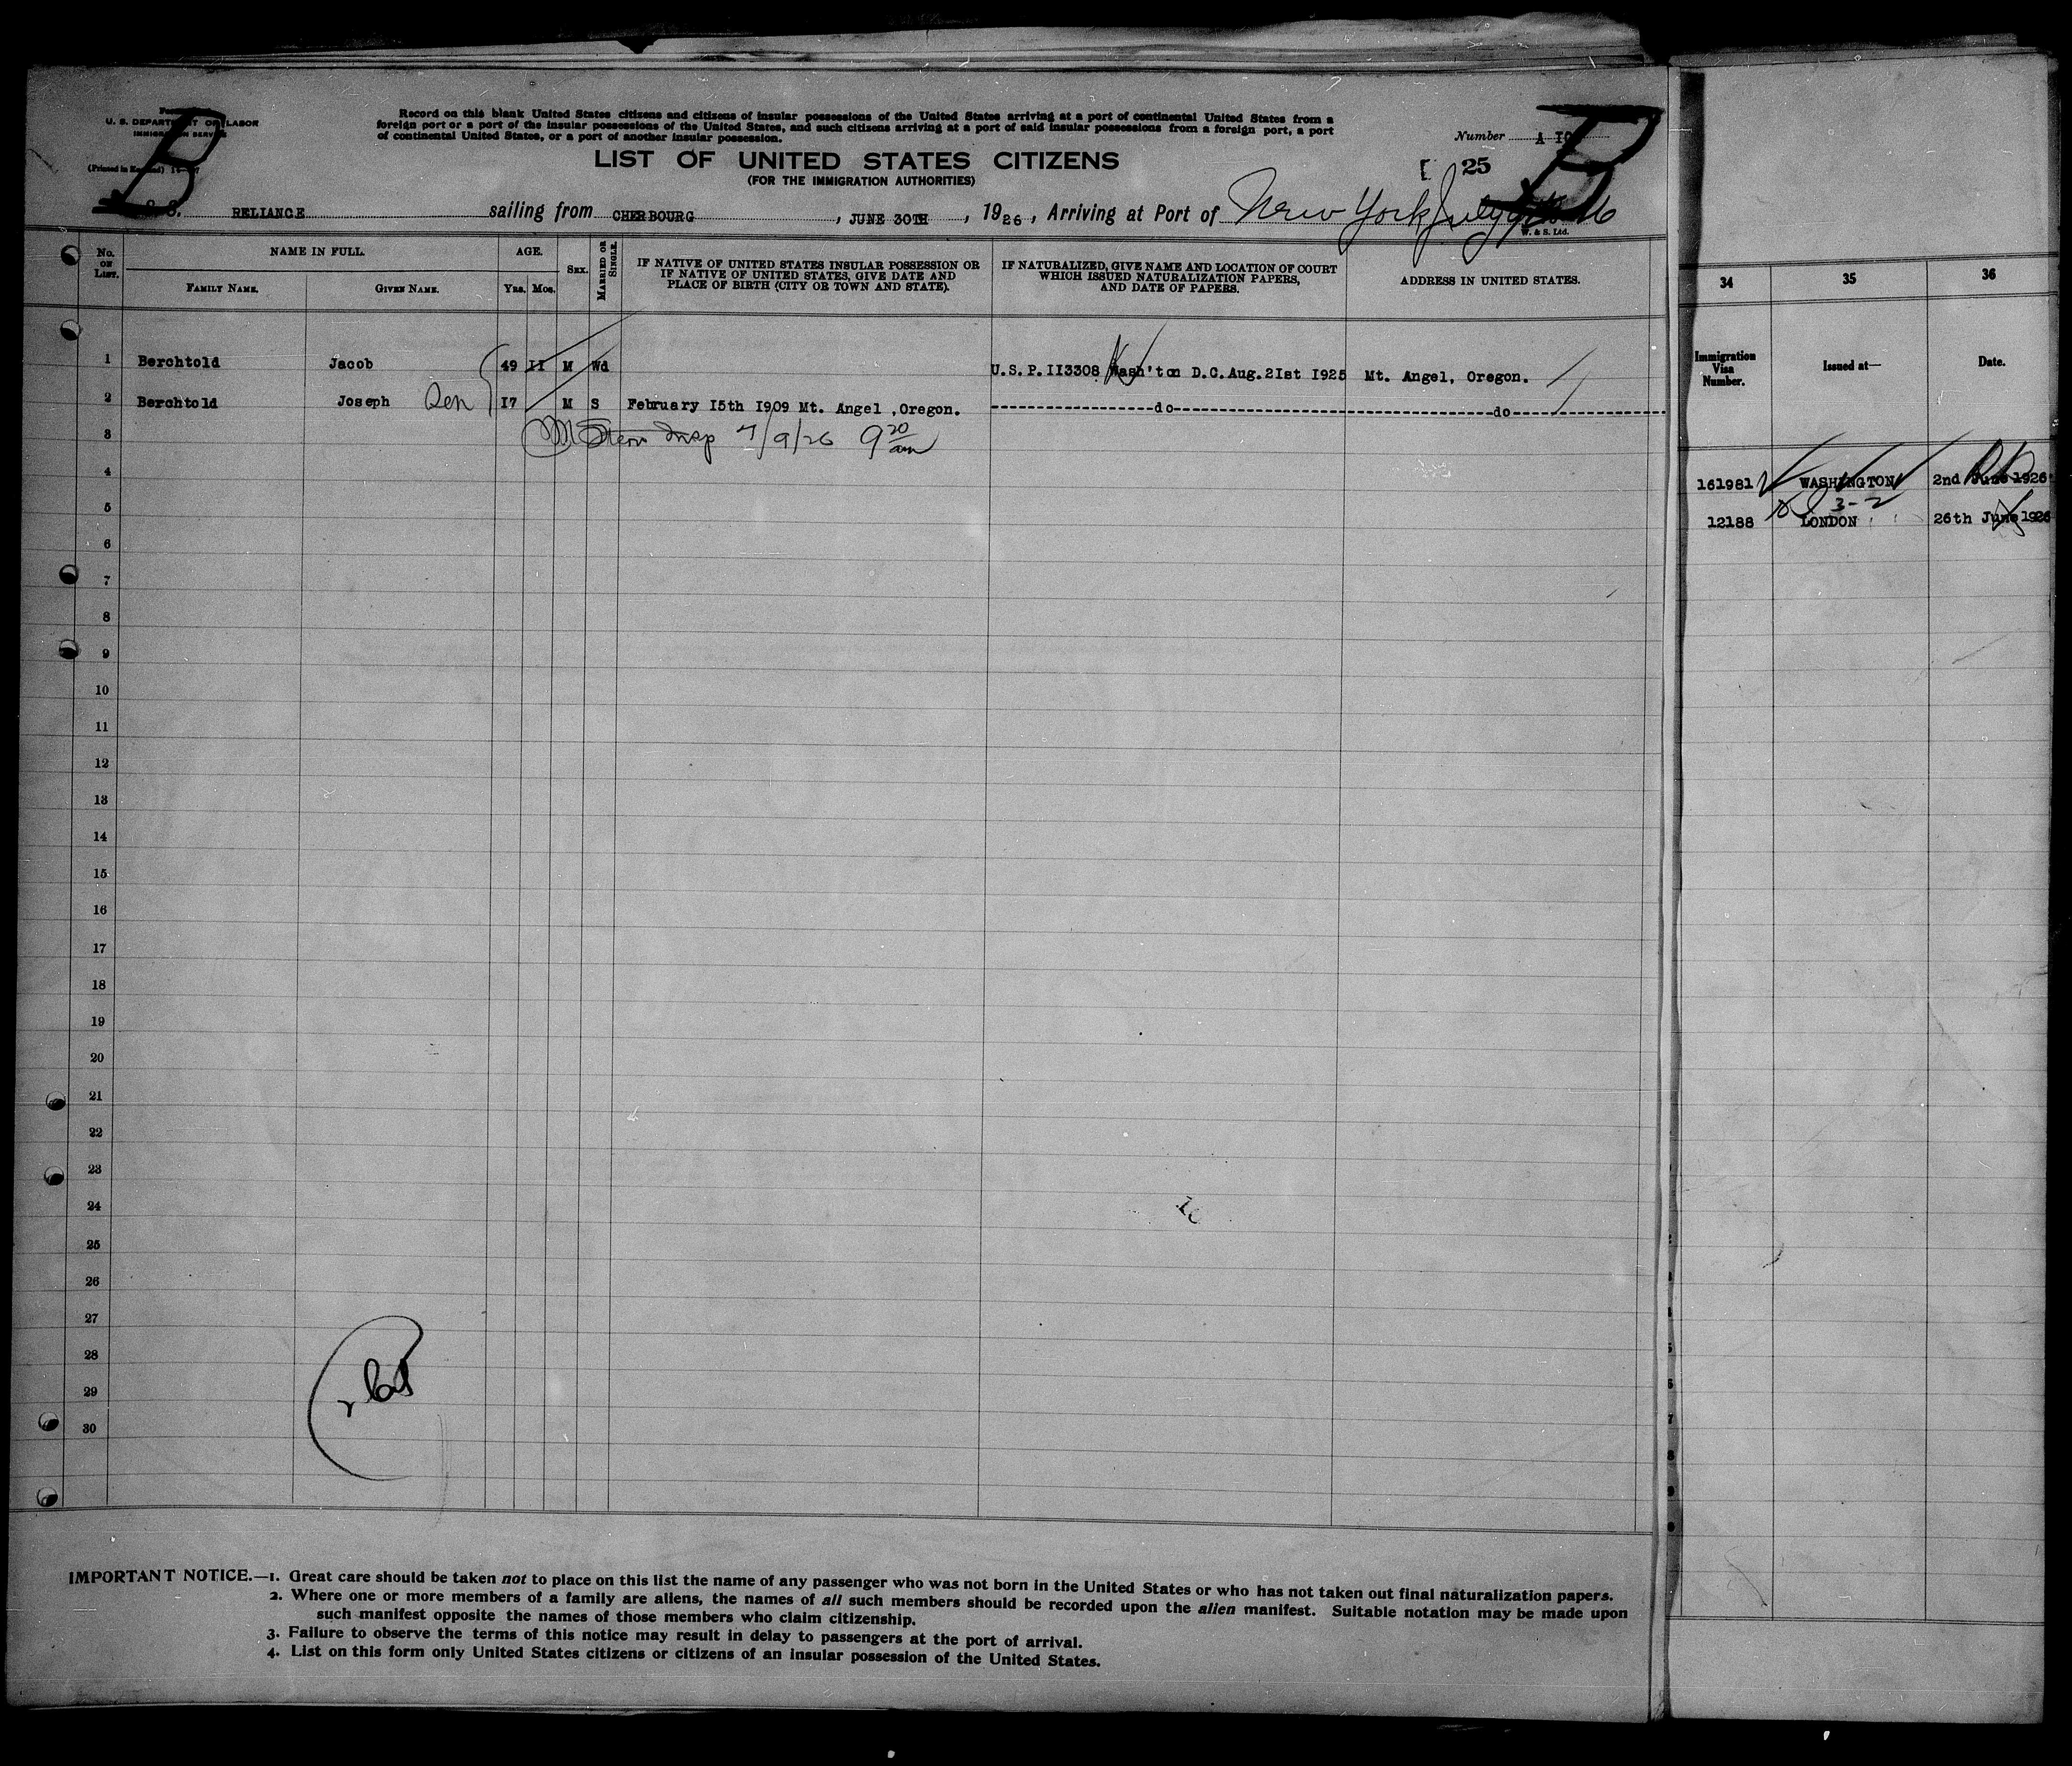 U. S. DEPARTMENT OF LABOR
IMMIGRATION SERVICE
B
Record on this blank United States citizens and citizens of insular possessions of the United States arriving at a port of continental United States from a
foreign port or a port of the insular possessions of the United States, and such citizens arriving at a port of said insular possessions from a foreign port, a port
of continental United States, or a port of another insular possession.
LIST OF UNITED STATES CITIZENS
(FOR THE IMMIGRATION AUTHORITIES)
Number
B
25
S.S. RELIANCE sailing from CHERBOURG, JUNE 30TH, 1926, Arriving at Port of New York July 9th
W. & S. Ltd.
No. ON LIST.
NAME IN FULL.
FAMILY NAME.
GIVEN NAME.
AGE.
YRS. MOS.
SEX.
MARRIED OR SINGLE.
IF NATIVE OF UNITED STATES INSULAR POSSESSION OR
IF NATIVE OF UNITED STATES, GIVE DATE AND
PLACE OF BIRTH (CITY OR TOWN AND STATE).
IF NATURALIZED, GIVE NAME AND LOCATION OF COURT
WHICH ISSUED NATURALIZATION PAPERS,
AND DATE OF PAPERS.
ADDRESS IN UNITED STATES.
1 Berchtold Jacob 49 II M Wd U.S.P.II3308 Wash'ton D.C.Aug.2Ist I925 Mt. Angel, Oregon.
2 Berchtold Joseph I7 M S February I5th I909 Mt. Angel ,Oregon. do do
3 7/9/26 9 20 am
4
5
6
7
8
9
10
11
12
13
14
15
16
17
18
19
20
21
22
23
24
25
26
27
28
29
30
IMPORTANT NOTICE.—1. Great care should be taken not to place on this list the name of any passenger who was not born in the United States or who has not taken out final naturalization papers.
2. Where one or more members of a family are aliens, the names of all such members should be recorded upon the alien manifest. Suitable notation may be made upon
such manifest opposite the names of those members who claim citizenship.
3. Failure to observe the terms of this notice may result in delay to passengers at the port of arrival.
4. List on this form only United States citizens or citizens of an insular possession of the United States.
34 35 36
Immigration
Visa
Number.
Issued at—
Date.
161981 WASHINGTON 2nd June 1926
3-2
12188 LONDON 26th June 1926